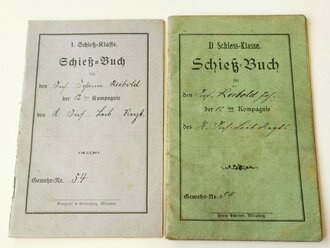 I. Schieß-Klasse.
Schieß-Buch
für
den Inf. Johann Reibold
der 12ten Kompagnie
des K. Inf. Leib Regt.
Gewehr-Nr. 54
II Schiess-Klasse.
Schieß-Buch
für
den Inf. Reibold Joh.
der 12ten Kompagnie
des K. Inf. Leib Regts
Gewehr-Nr. 54